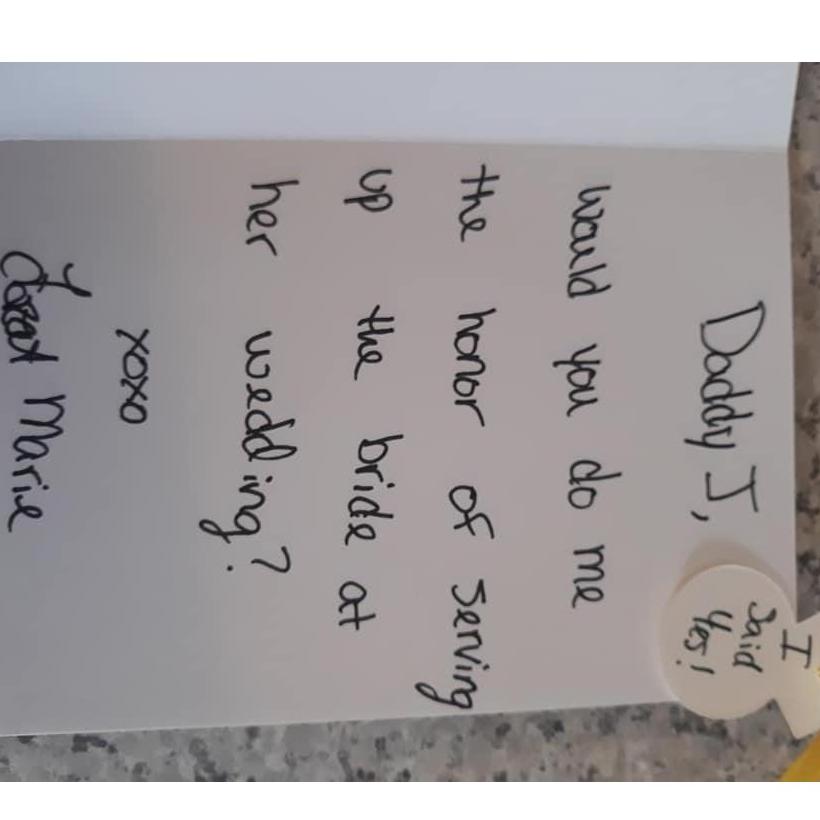 Daddy J,
would you do me
the honor of serving
up the bride at
her wedding?
xoxo
Marie
I
Said
Yes!